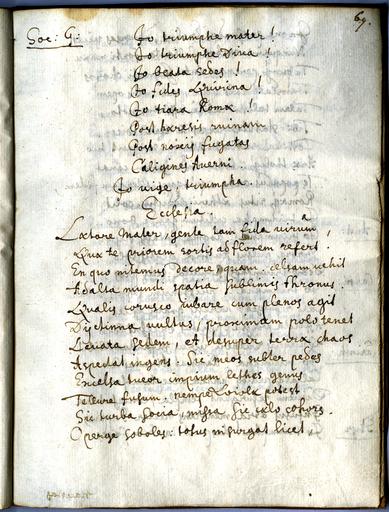 69.
Soc: G: Jo triumphe mater!
Jo triumphe Diva!
Jo beata sedes!
Jo fides Quirina!
Jo tiara Romæ!
Post hæresis ruinam
Post noxij fugatas
Caligines Averni.
Jo vige, triumpha.
Ecclesia
Lætare Mater, gente tam fida virum,
Quæ te priorem sortis ad florem refert.
En quo nitemus decore, quam celsam vehit
Ad alta mundi spatia sublimis thronus.
Qualis corusco iubare cum plenos agit
Dictinna vultus, proximam polo tenet
Levata sedem, et desuper terræ chaos
Aspectat ingens. Sic meos subter pedes
Excelsa tueor impium lethes genus
Tellure fusum. nempe
Sic turba socia, missa sic cælo cohors.
O perge soboles: totus insurgat licet